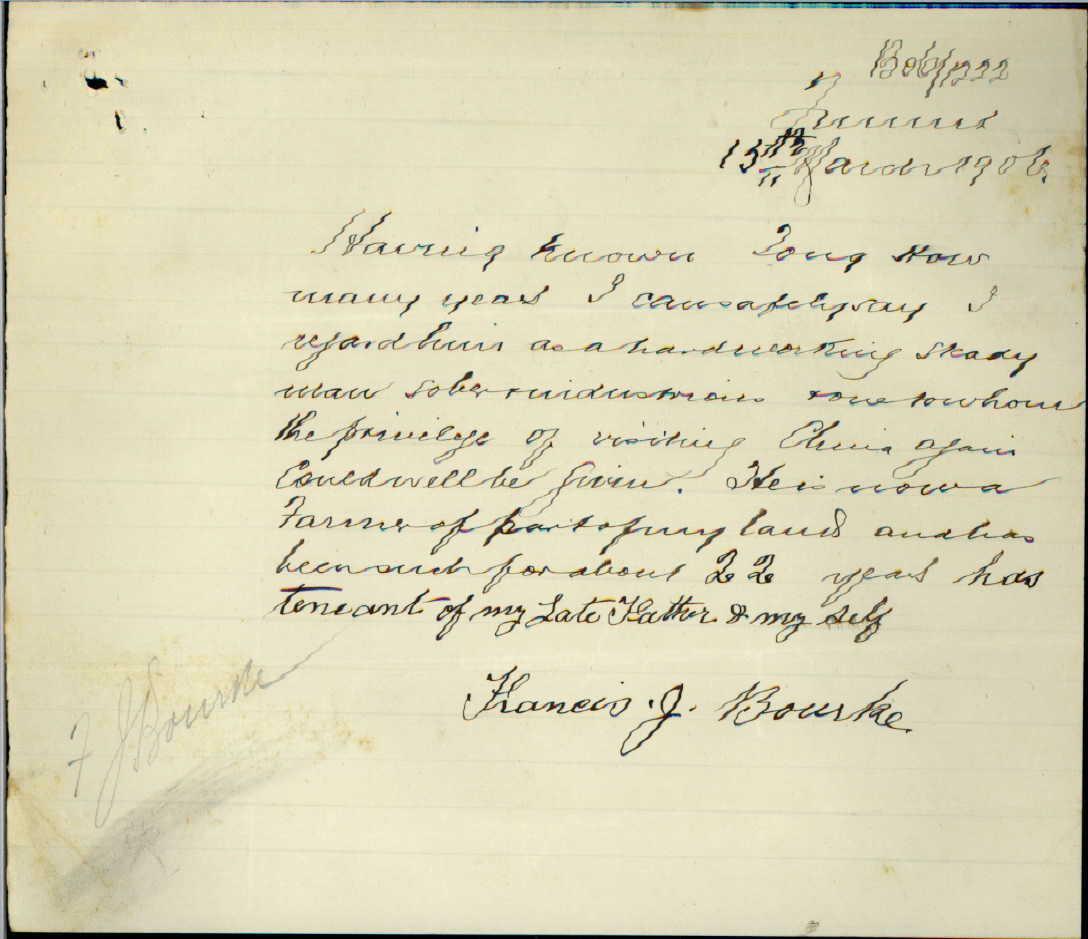 15th March 1906.
Having known Tong How
many years I can safely say I
regard him as a hardworking steady
man sober & industrious & one to whom
the privilege of visiting China again
Could well be given. He is now a
Farmer of part of my land and has
been such for about 22 years has
teneant of my Late Father & my self
Francis. J. Bourke
F J Bourke